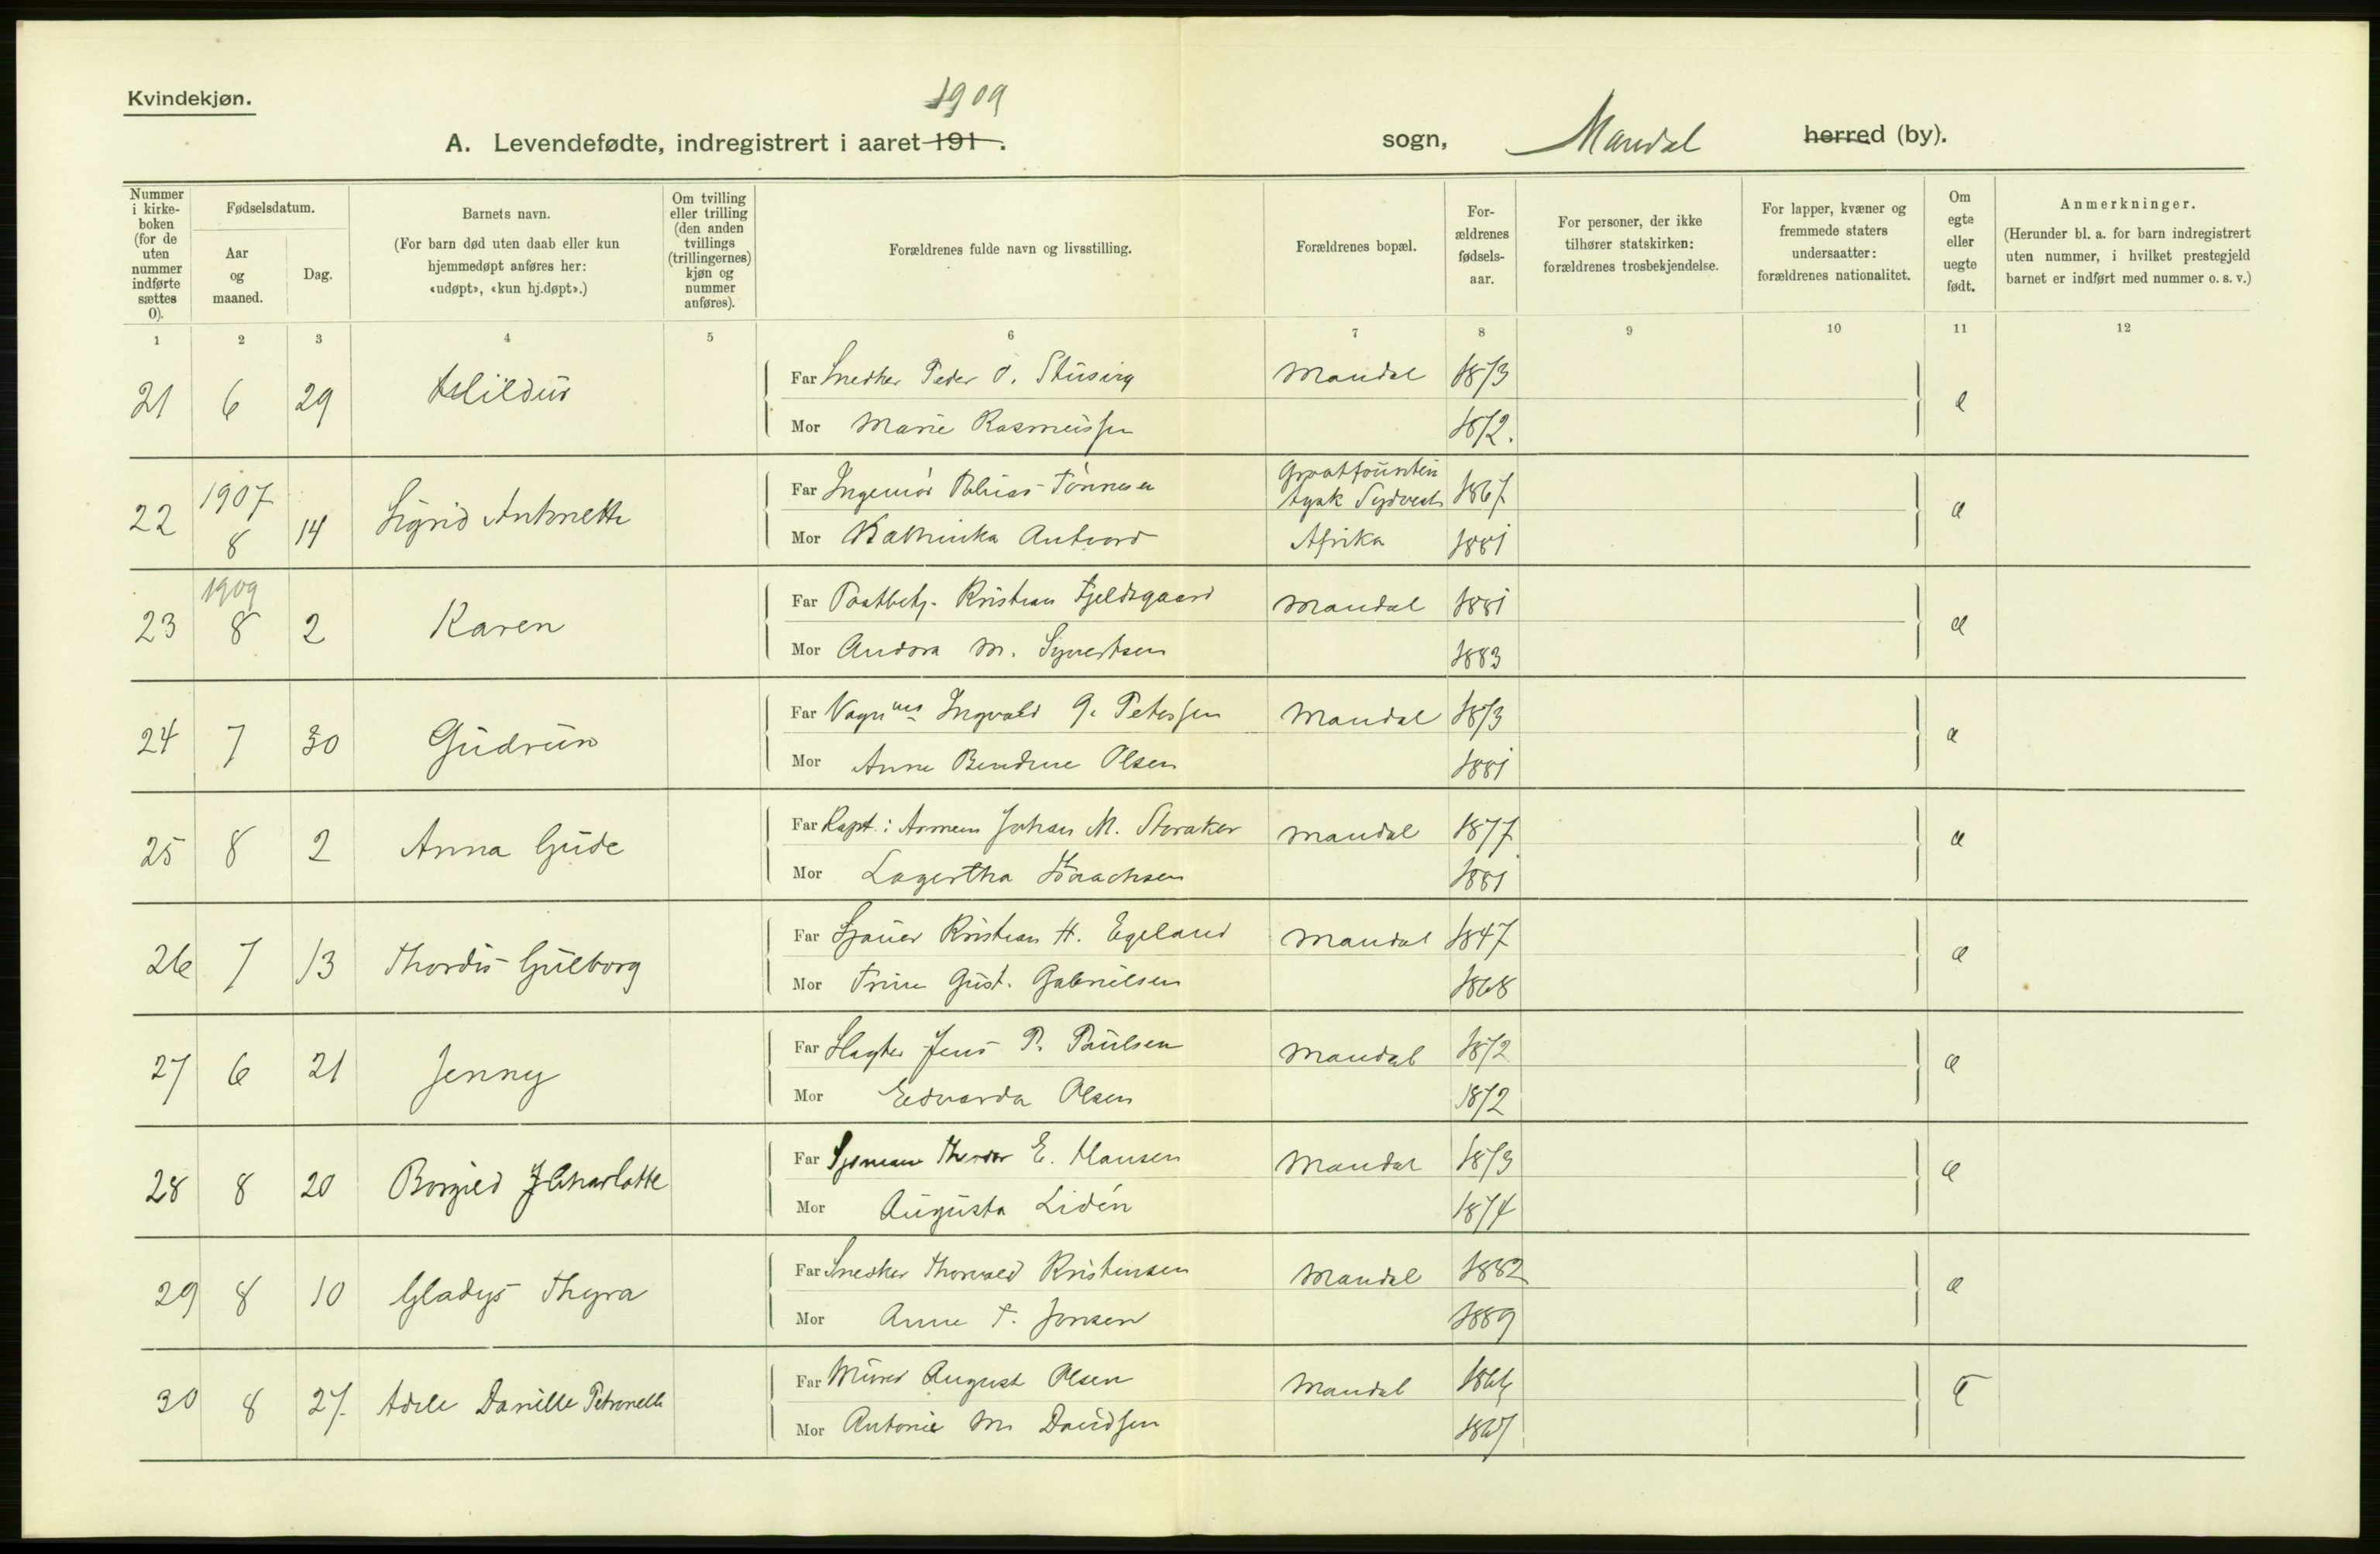 Kvindekjøn.
1909
A. Levendefødte, indregistrert i aaret 191 .
sogn, Mandal herred (by).
Nummer i kirke-boken (for de uten nummer indførte sættes 0).
Fødselsdatum.
Aar og maaned.
Dag.
Barnets navn.
(For barn død uten daab eller kun hjemmedøpt anføres her: «udøpt», «kun hj.døpt».)
Om tvilling eller trilling (den anden tvillings (trillingernes) kjøn og nummer anføres).
Forældrenes fulde navn og livsstilling.
Forældrenes bopæl.
For-ældrenes fødsels-aar.
For personer, der ikke tilhører statskirken: forældrenes trosbekjendelse.
For lapper, kvæner og fremmede staters undersaatter: forældrenes nationalitet.
Om egte eller uegte født.
Anmerkninger.
(Herunder bl. a. for barn indregistrert uten nummer, i hvilket prestegjeld barnet er indført med nummer o. s. v.)
1 2 3 4 5 6 7 8 9 10 11 12
21 6 29 Far Snedker Peder O. Mandal 1873
Mor Marie Rasmussen 1872. e
22 1907 8 14 Sigrid Antonette Far Ingeniør Tobias Tønnesen Grootfountein Tysk Sydvest 1867
Mor Kathinka Afrika 1881 e
23 1909 8 2 Karen Far Postbetj. Kristian Fjeldsgaard Mandal 1881
Mor Andora M. Syvertsen 1883 e
24 7 30 Gudrun Far Vogn Ingvald G. Peterssen Mandal 1873
Mor Anne Bendine Olsen 1881 e
25 8 2 Anna Gude Far Kapt. i Armeen Johan M. Storaker Mandal 1877
Mor Lagertha Isaachsen 1881 e
26 7 13 Thordis Gulborg Far Sjauer Kristian H. Egeland Mandal 1847
Mor Trine Gust. Gabrielsen 1868 e
27 6 21 Jenny Far Slagter Jens P. Paulsen Mandal 1872
Mor Edvarda Olsen 1872 e
28 8 20 Borgild Charlotte Far Sjømand Theodor E. Hansen Mandal 1873
Mor Augusta Lidén 1874 e
29 8 10 Gladys Thyra Far Snedker Thorvald Kristensen Mandal 1882
Mor Anne T. Jonsen 1889 e
30 8 27. Adele Danille Petronelle Far Murer August Olsen Mandal 1866
Mor Antonie M. Davidsen 1867